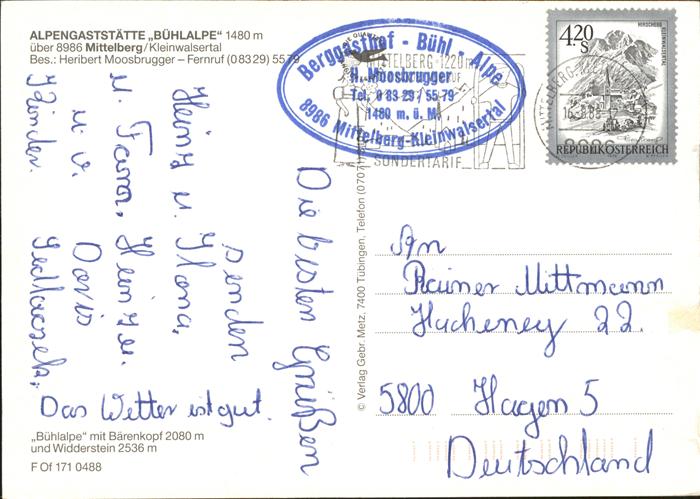 ALPENGASTSTÄTTE „BÜHLALPE" 1480 m
über 8986 Mittelberg/Kleinwalsertal
Bes.: Heribert Moosbrugger – Fernruf (08329) 5579
Berggasthof - Bühl - Alpe
H. Moosbrugger
Tel. 0 83 29 / 55 79
1480 m. ü. M.
8986 Mittelberg-Kleinwalsertal
SONDERTARIF
4.20 S
HIRSCHEGG
KLEINWALSERTAL
REPUBLIK ÖSTERREICH
Die besten Grüßen
senden
Heinz u. Ilona,
u. Fam. Heinz u.
u. v. Doris
Kinder.
Das Wetter ist gut.
An
Rainer Mittmann
Hacheney 22.
5800 Hagen 5
Deutschland
© Verlag Gebr. Metz, 7400 Tübingen, Telefon (0707
„Bühlalpe" mit Bärenkopf 2080 m
und Widderstein 2536 m
F Of 171 0488